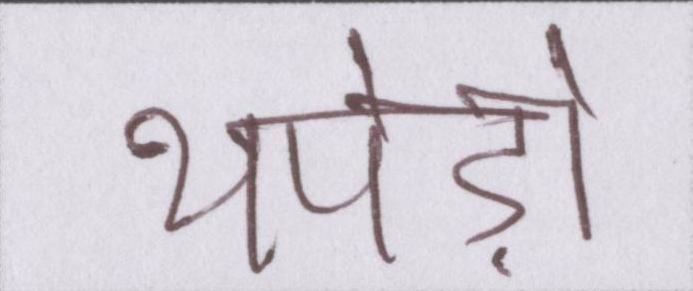 थपेड़ो